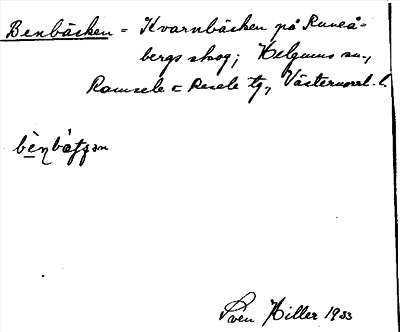 Benbäcken = Kvarnbäcken på Runeå-
bergs skog; Helgums sn.,
Ramsele o Resele tg, Västernorrl. l.
bènbätʒan
Sven Hiller 1933